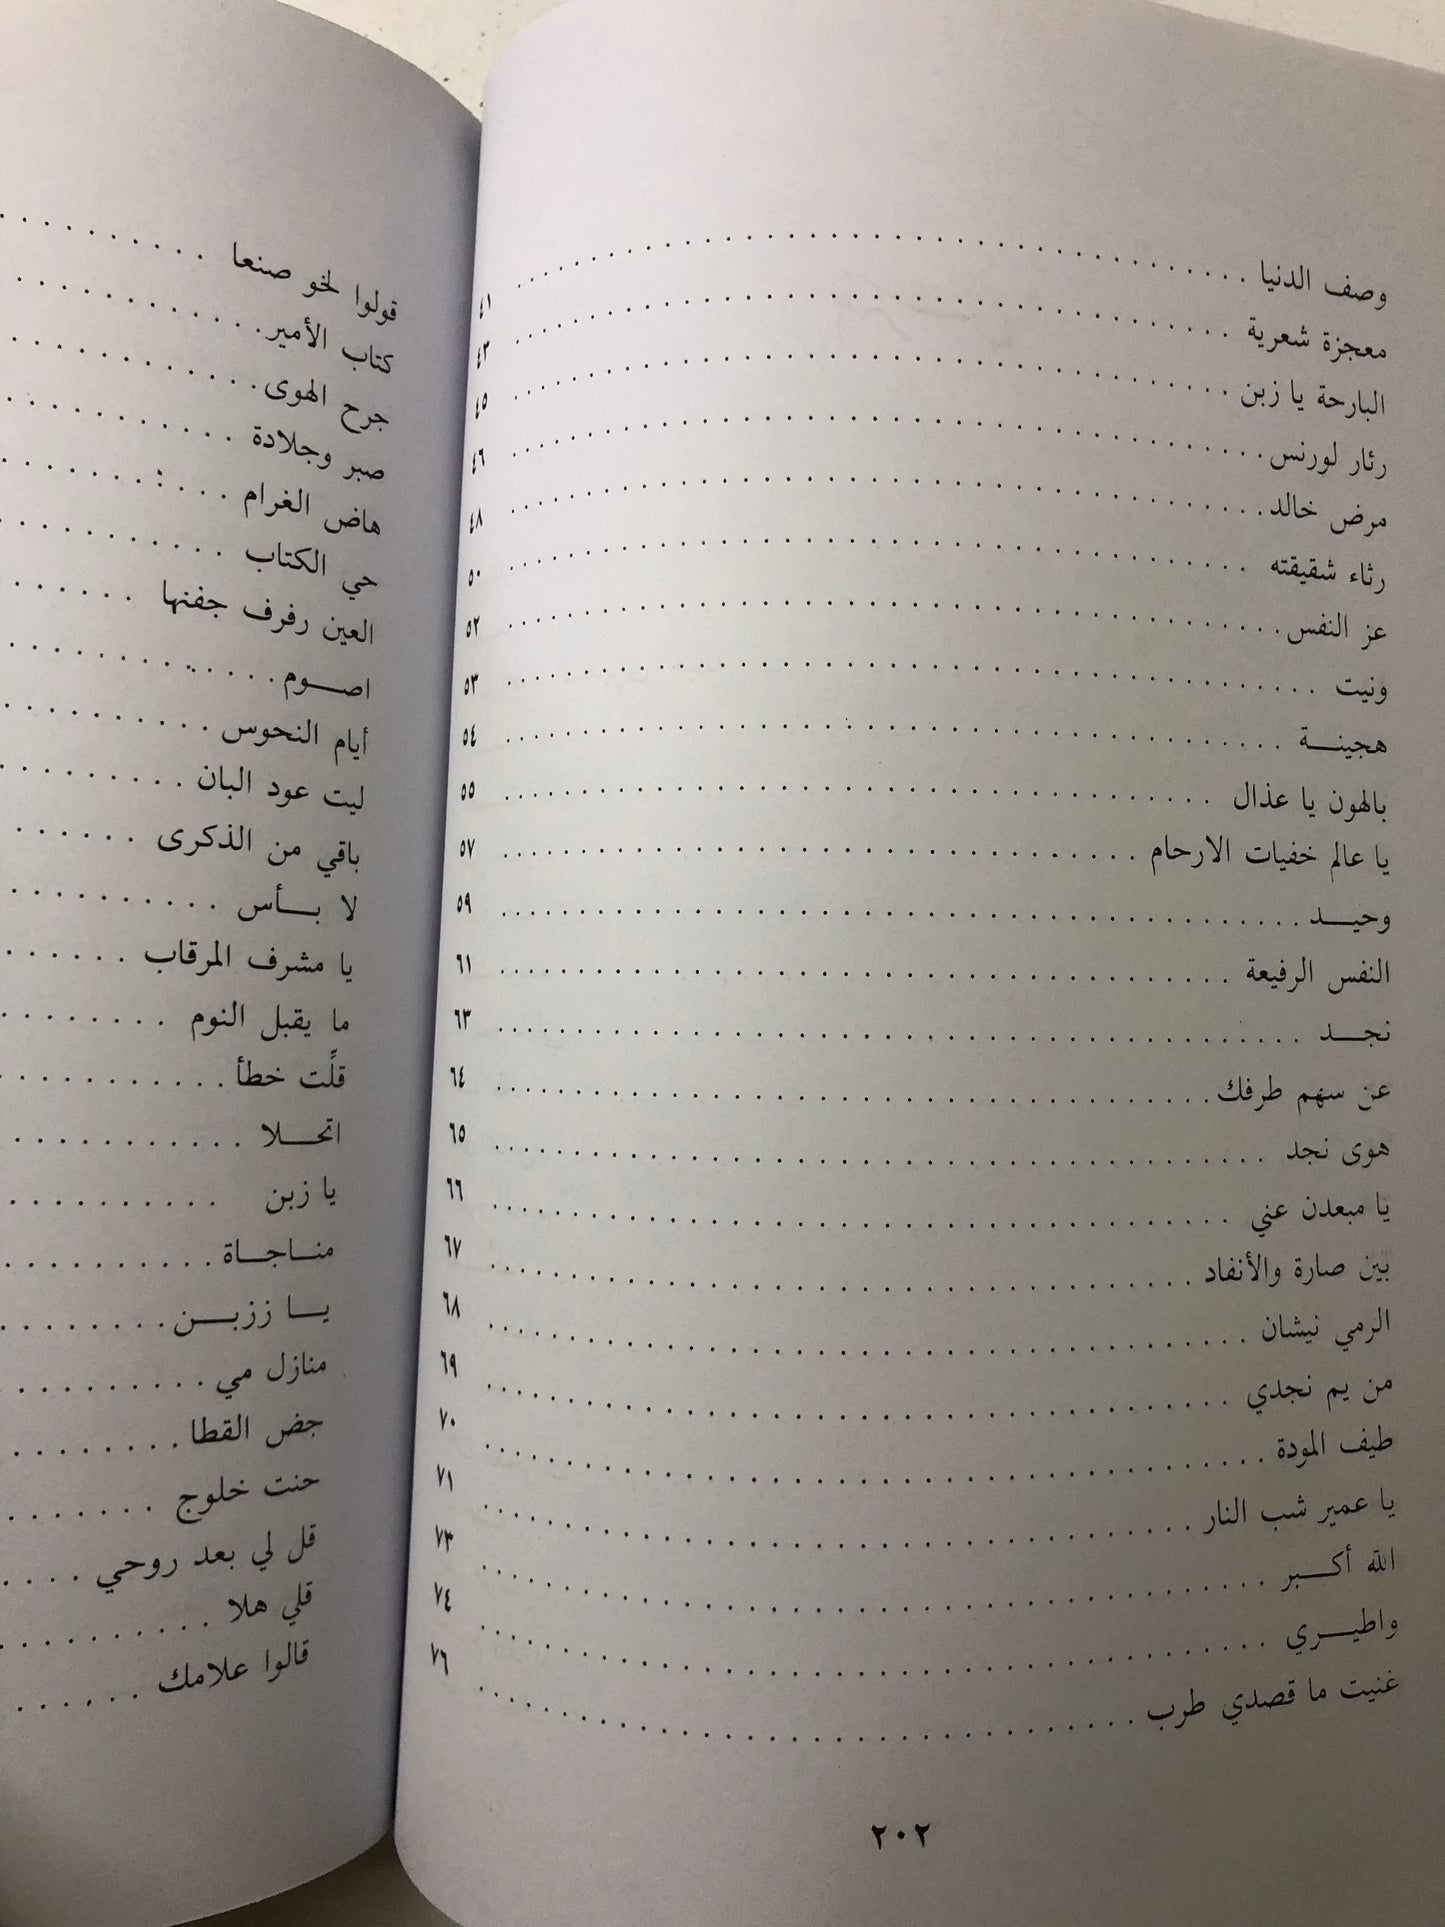 وصف الدنيا ٤١
معجزة شعرية ٤٣
البارحة يا زبن ٤٥
رثار لورنس ٤٦
مرض خالد ٤٨
رثاء شقيقته ٥٠
عز النفس ٥٢
ونيت ٥٣
هجينـــة ٥٤
بالهون يا عذال ٥٥
يا عالم خفيات الارحام ٥٧
وحيـــد ٥٩
النفس الرفيعة ٦١
نجـــد ٦٣
عن سهم طرفك ٦٤
هوى نجد ٦٥
يا مبعدن عني ٦٦
بين صارة والأنفاد ٦٧
الرمي نيشان ٦٨
من يم نجدي ٦٩
طيف المودة ٧٠
يا عمير شب النار ٧١
الله أكـــبر ٧٣
واطيـــري ٧٤
غنيت ما قصدي طرب ٧٦
٢٠٢
قولوا لخو صنعا
كتاب الأمير
جرح الهوى
صبر وجلادة
هاض الغرام
حي الكتاب
العين رفرف جفنها
اصـــوم
أيام النحوس
ليت عود البان
باقي من الذكرى
لا بـــأس
يا مشرف المرقاب
ما يقبل النوم
قلَّت خطأ
اتحـــلا
يا زبن
منـــاجـــاة
يـــا ززبـــن
منازل مي
جض القطا
حنت خلوج
قل لي بعد روحي
قلي هلا
قالوا علامك